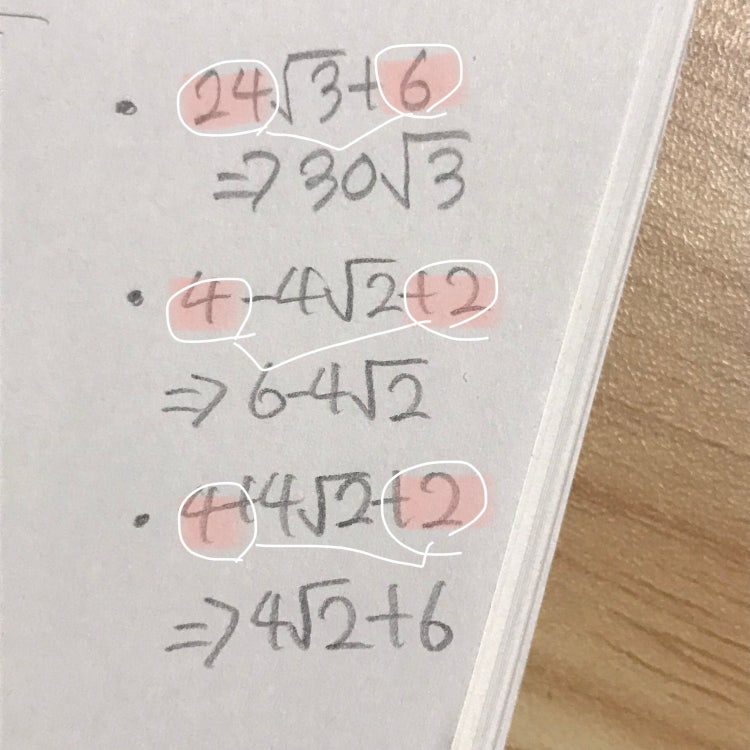 • 24√3+6
⇒ 30√3
• 4-4√2+2
⇒ 6-4√2
• 4+4√2+2
⇒ 4√2+6